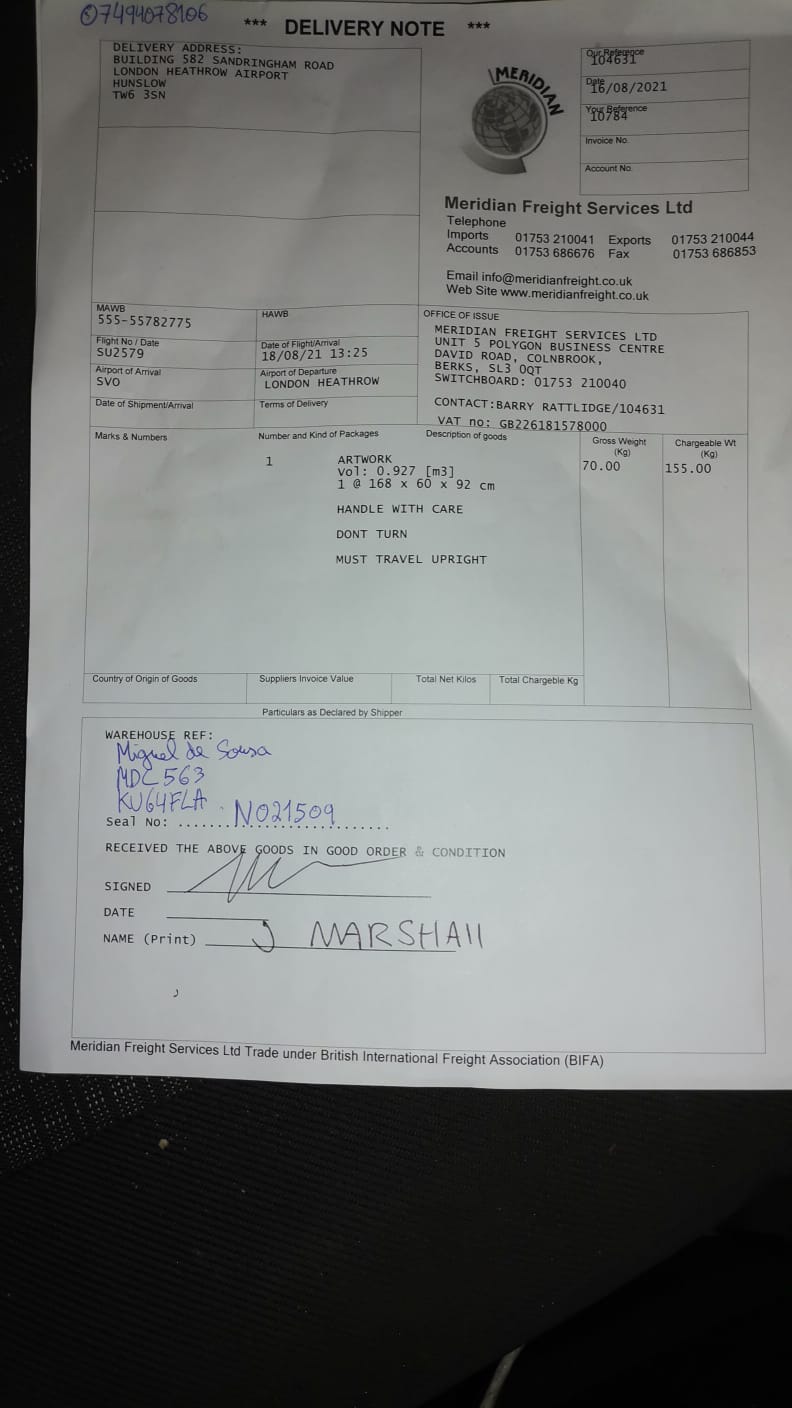 07494078106
*** DELIVERY NOTE ***
DELIVERY ADDRESS:
BUILDING 582 SANDRINGHAM ROAD
LONDON HEATHROW AIRPORT
HUNSLOW
TW6 3SN
MERIDIAN
Our Reference
104631
Date
16/08/2021
Your Reference
10784
Invoice No.
Account No.
Meridian Freight Services Ltd
Telephone
Imports 01753 210041 Exports 01753 210044
Accounts 01753 686676 Fax 01753 686853
Email info@meridianfreight.co.uk
Web Site www.meridianfreight.co.uk
MAWB
555-55782775
HAWB
Flight No / Date
SU2579
Date of Flight/Arrival
18/08/21 13:25
Airport of Arrival
SVO
Airport of Departure
LONDON HEATHROW
Date of Shipment/Arrival
Terms of Delivery
OFFICE OF ISSUE
MERIDIAN FREIGHT SERVICES LTD
UNIT 5 POLYGON BUSINESS CENTRE
DAVID ROAD, COLNBROOK,
BERKS, SL3 0QT
SWITCHBOARD: 01753 210040
CONTACT:BARRY RATTLIDGE/104631
VAT no: GB226181578000
Marks & Numbers
Number and Kind of Packages
Description of goods
Gross Weight
(Kg)
Chargeable Wt
(Kg)
1 ARTWORK 70.00 155.00
Vol: 0.927 [m3]
1 @ 168 x 60 x 92 cm
HANDLE WITH CARE
DONT TURN
MUST TRAVEL UPRIGHT
Country of Origin of Goods
Suppliers Invoice Value
Total Net Kilos
Total Chargeble Kg
Particulars as Declared by Shipper
WAREHOUSE REF:
Miguel de Sousa
MDC 563
KU64FLA
Seal No: ....... N021509 .......
RECEIVED THE ABOVE GOODS IN GOOD ORDER & CONDITION
SIGNED
DATE
NAME (Print) J MARSHAll
Meridian Freight Services Ltd Trade under British International Freight Association (BIFA)